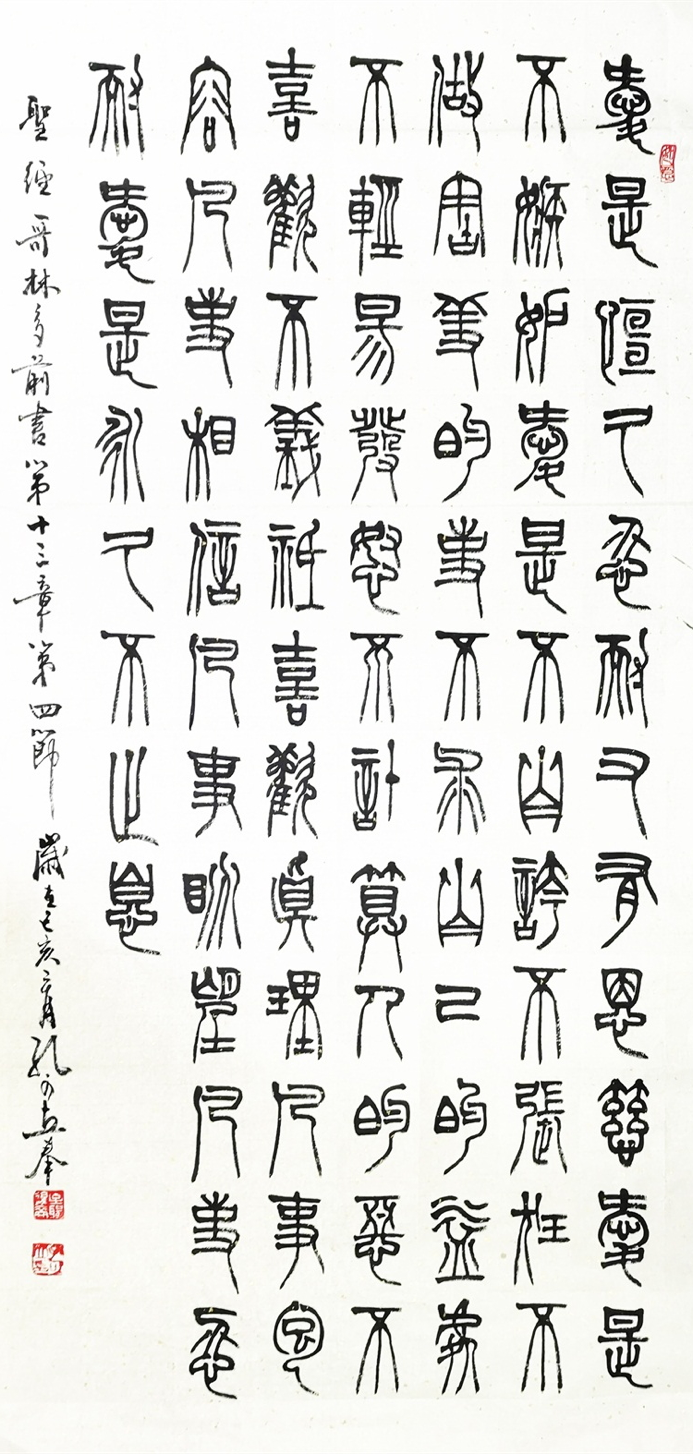 愛是恆久忍耐又有恩慈愛是
不嫉妒愛是不自誇不張狂不
做害羞的事不求自己的益處
不輕易發怒不計算人的惡不
喜歡不義祇喜歡眞理凡事包
容凡事相信凡事盼望凡事忍
耐愛是永久不止息
聖經哥林多前書第十三章第四節 歲在己亥